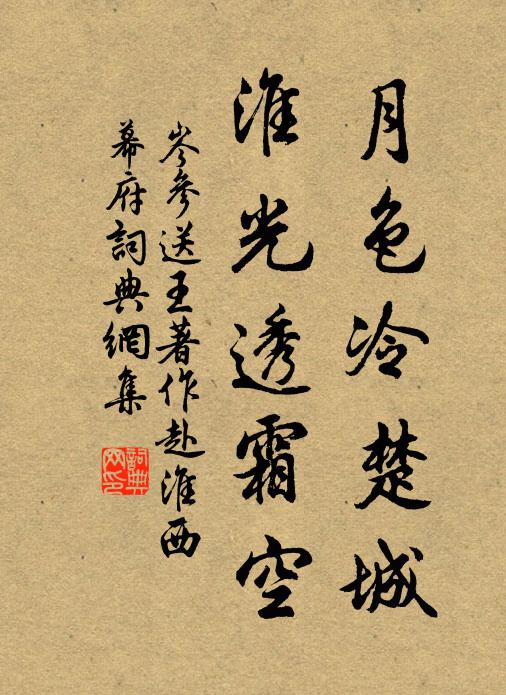 月色冷楚城
淮光透霜空
岑參送王著作赴淮西
幕府詞典網集
詞典
网印